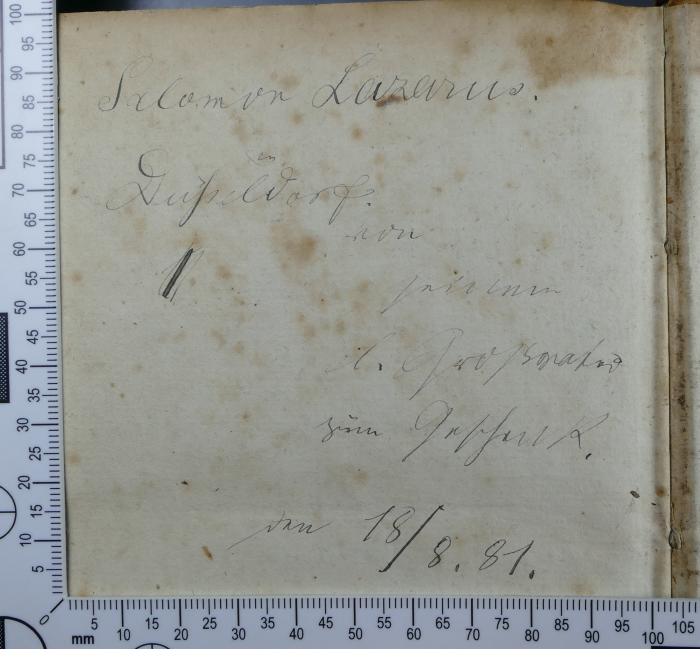 Salomon Lazarus.
in
Düsseldorf.
von
seinem
l. Großvater
zum Geschenk.
den 18/8. 81.
100
95
90
85
80
75
70
65
60
55
50
45
40
35
30
25
20
15
10
5
0
mm 5 10 15 20 25 30 35 40 45 50 55 60 65 70 75 80 85 90 95 100 105